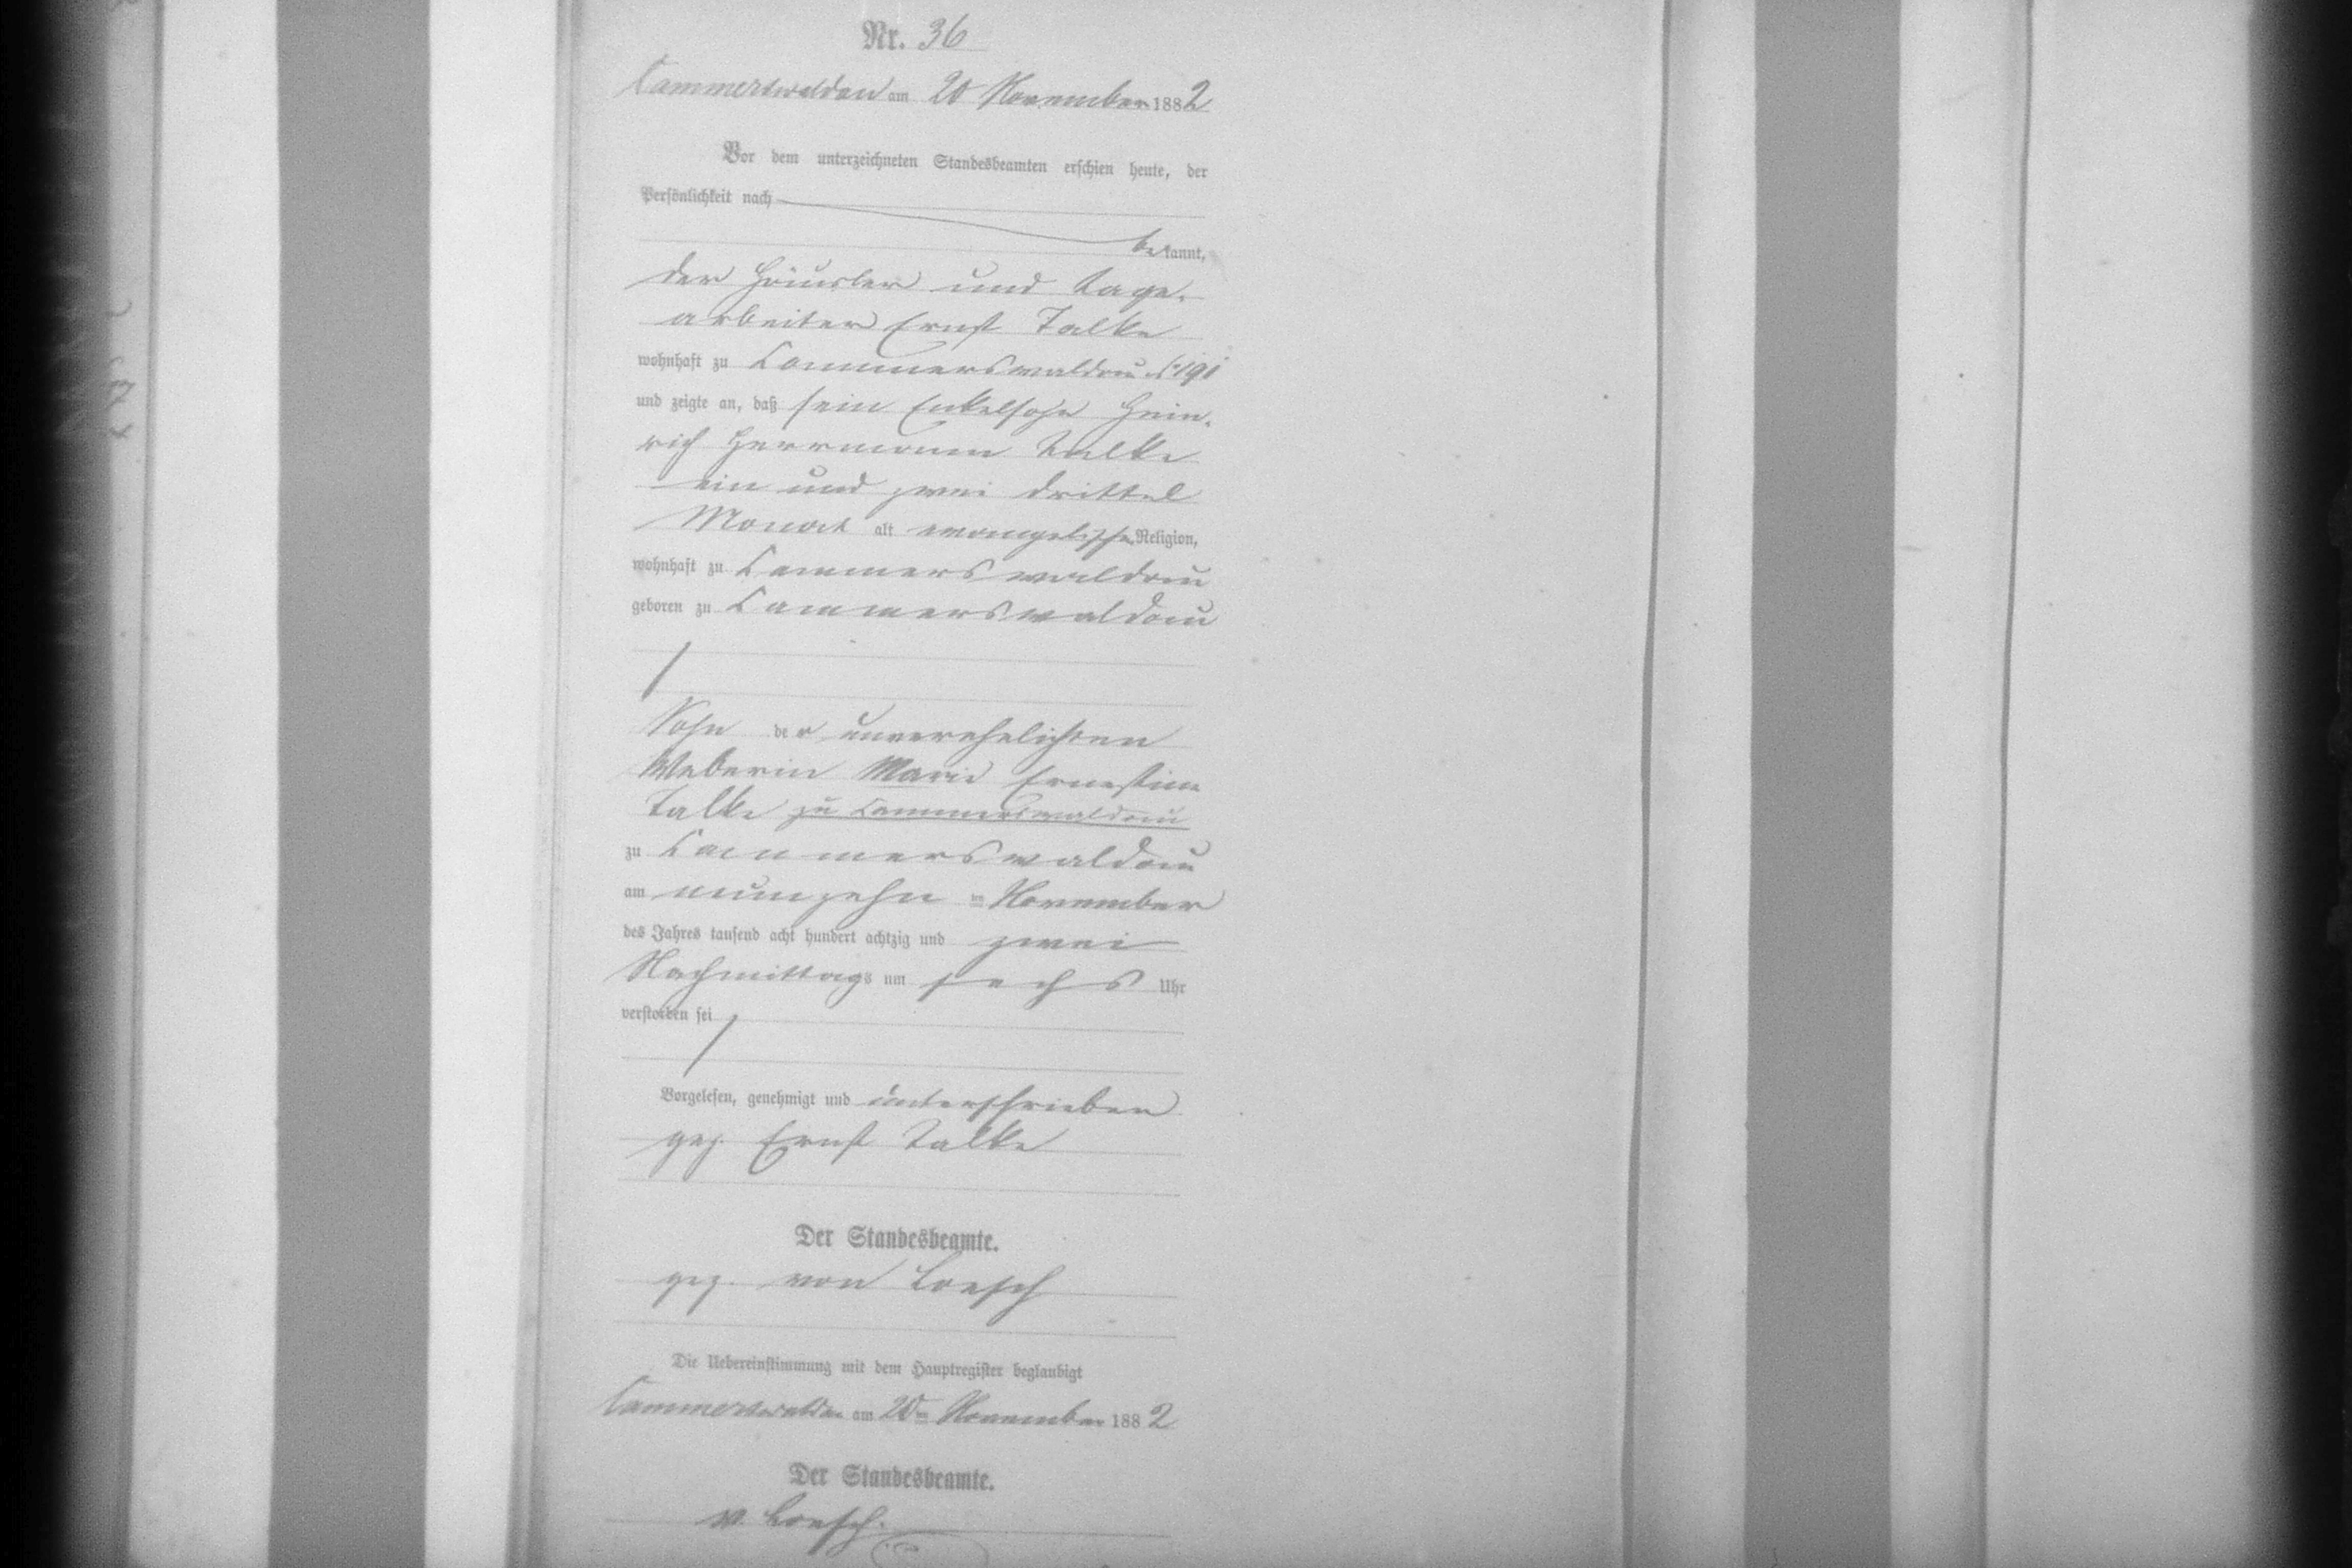 Nr. 36
Cammerswaldau am 20 November 1882
Vor dem unterzeichneten Standesbeamten erschien heute, der
Persönlichkeit nach
bekannt,
der Häusler und Tage-
arbeiter Ernst Talke
wohnhaft zu Cammerswaldau No 191
und zeigte an, daß sein Enkelsohn Hein-
rich Herrmann Talke
ein und zwei drittel
Monat alt evangelischer Religion,
wohnhaft zu Cammerswaldau
geboren zu Cammerswaldau
Sohn der unverehelichten
Weberin Marie Ernestine
Talke zu Cammerswaldau
zu Cammerswaldau
am neunzehnten November
des Jahres tausend acht hundert achtzig und zwei
Nachmittags um sechs Uhr
verstorben sei
Vorgelesen, genehmigt und unterschrieben
gez. Ernst Talke
Der Standesbeamte.
gez. von Loesch
Die Uebereinstimmung mit dem Hauptregister beglaubigt
Cammerswaldau am 20ten November 1882
Der Standesbeamte.
v. Loesch.